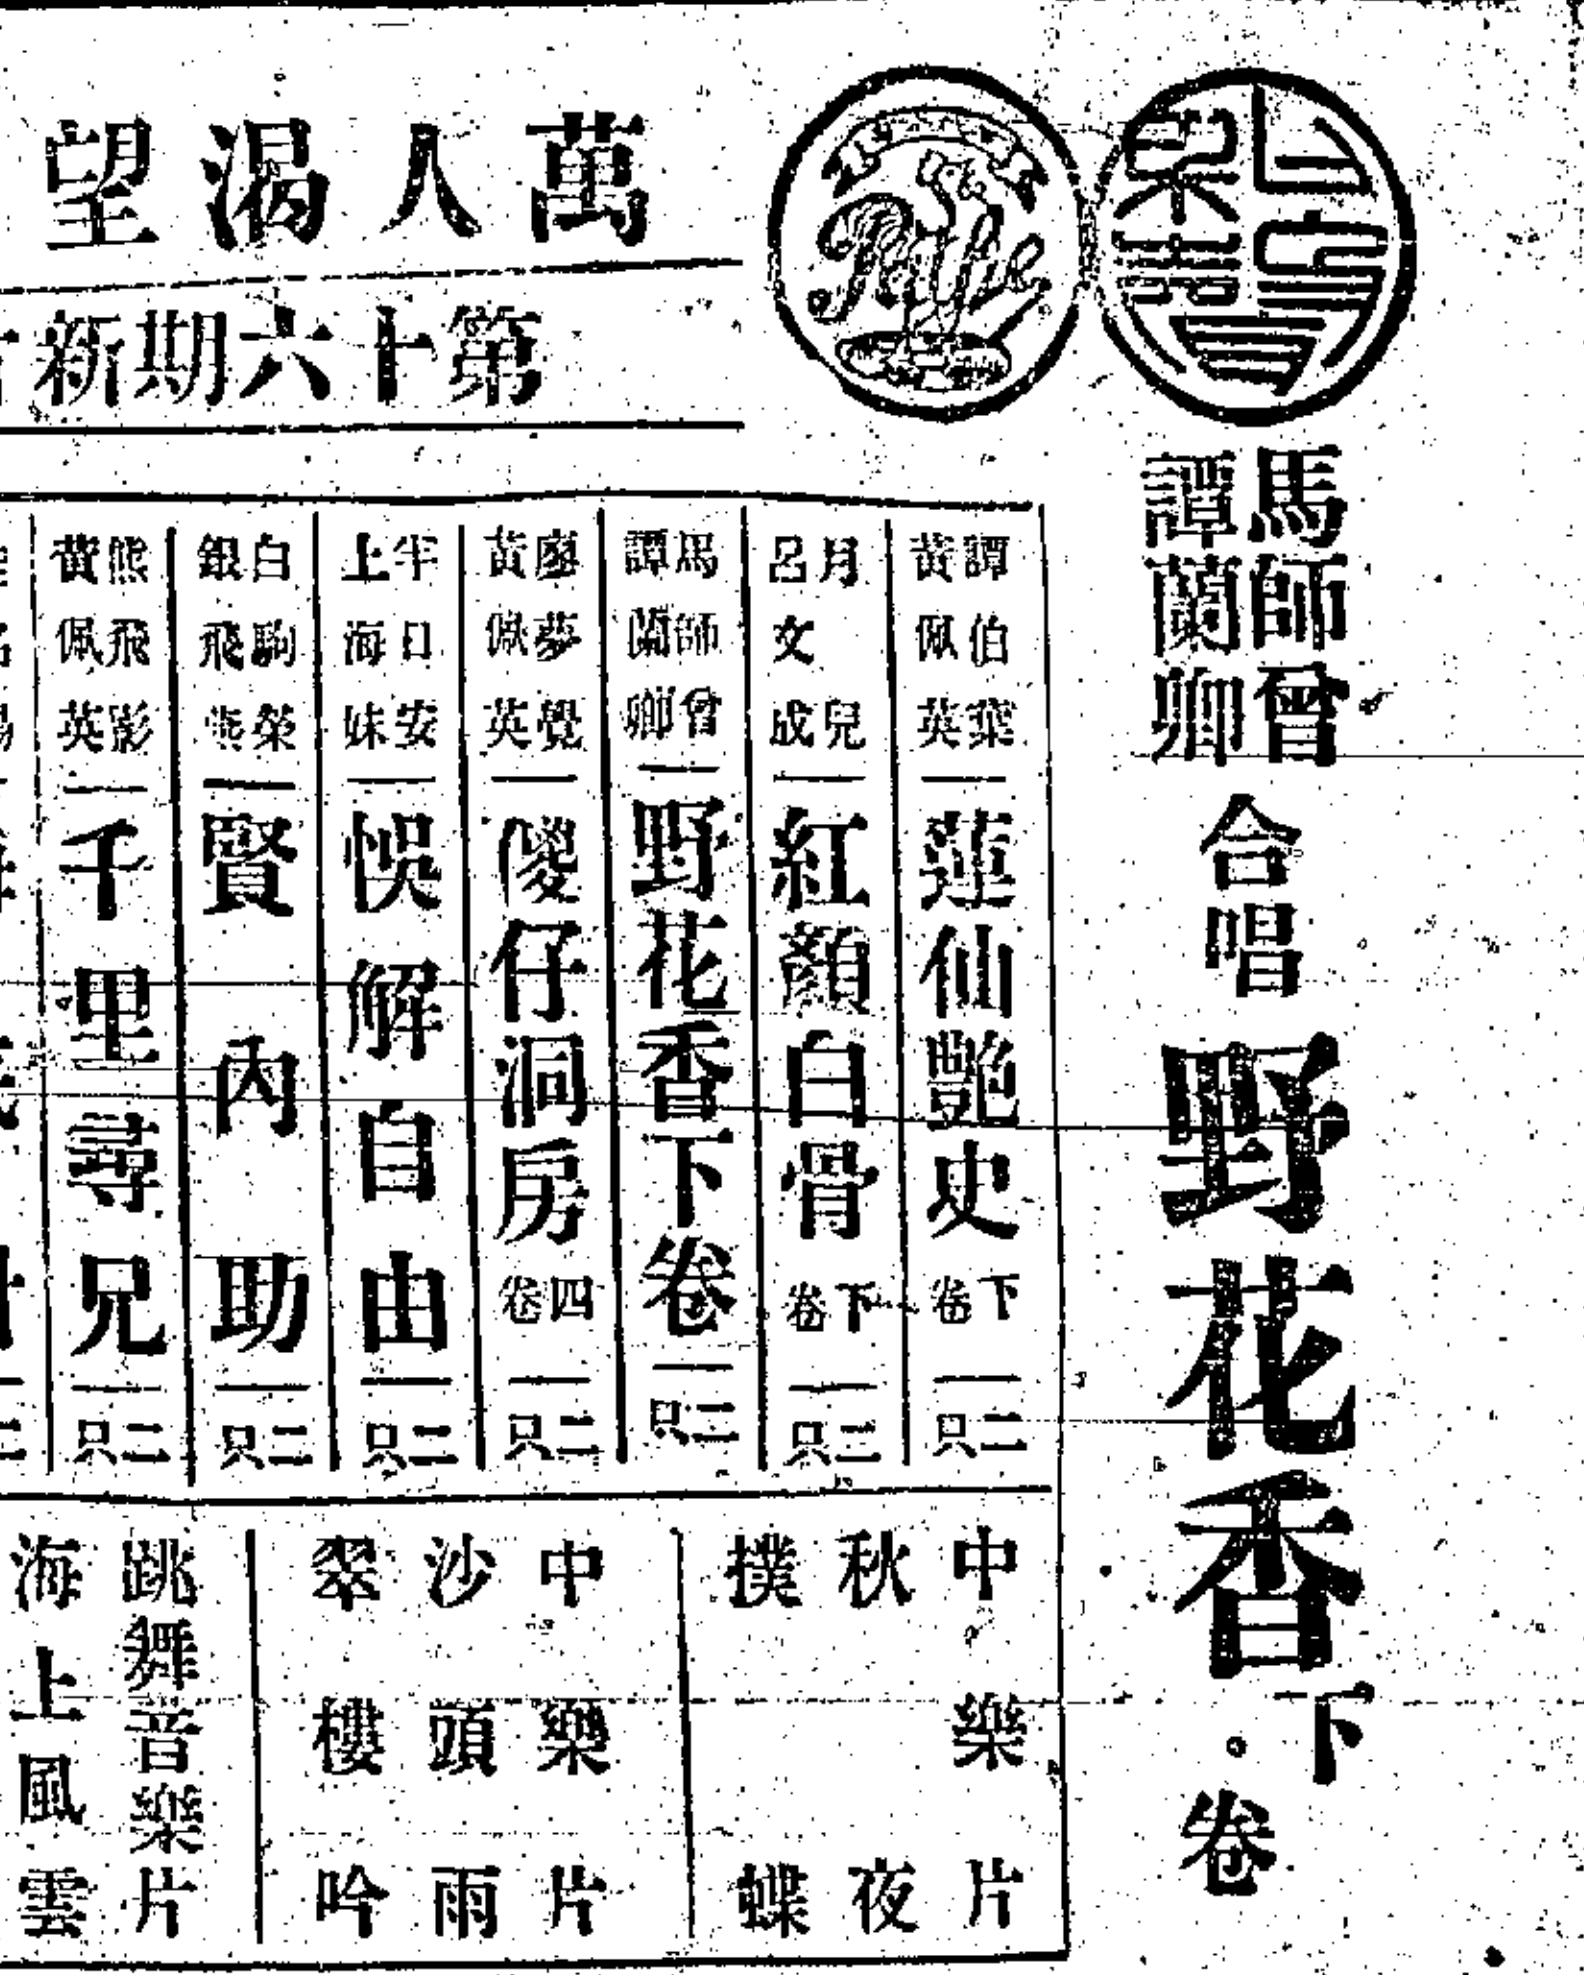 Pathé
萬人渴望
第十六期新
馬師曾
譚蘭卿
合唱
野花香
下卷
譚伯葉
黃佩英
蓮仙艷史
下卷
二只
月兒
呂文成
紅顏白骨
下卷
二只
馬師曾
譚蘭卿
野花香下卷
二只
廖夢覺
黃佩英
傻仔洞房
四卷
二只
半日安
上海妹
悞解自由
二只
白駒榮
銀飛燕
賢內助
二只
熊飛影
黃佩英
千里尋兄
二只
中樂片
秋夜
撲蝶
中樂片
沙頭雨
翠樓吟
跳舞音樂片
海上風雲